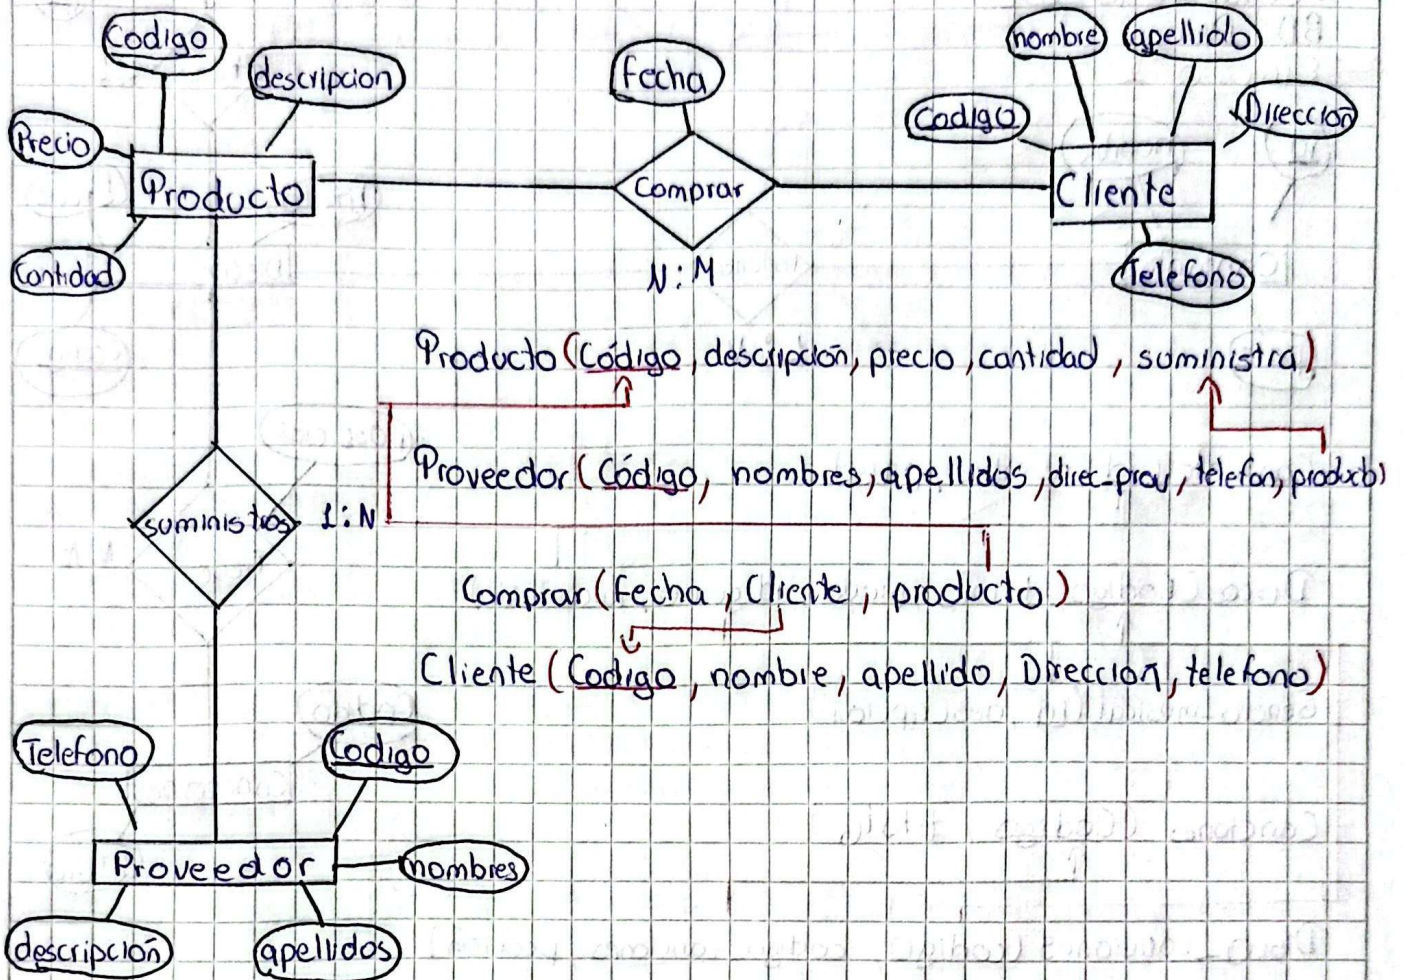 Codigo
descripcion
Precio
Producto
Cantidad
Fecha
Comprar
N:M
nombre
apellido
Codigo
Dirección
Cliente
Telefono
Producto (Código, descripción, precio, cantidad, suministra)
Proveedor (Código, nombres, apellidos, direc-prov, telefon, producto)
suministros 1:N
Comprar (fecha, Cliente, producto)
Cliente (Codigo, nombre, apellido, Dirección, telefono)
Telefono
Codigo
Proveedor
nombres
descripción
apellidos